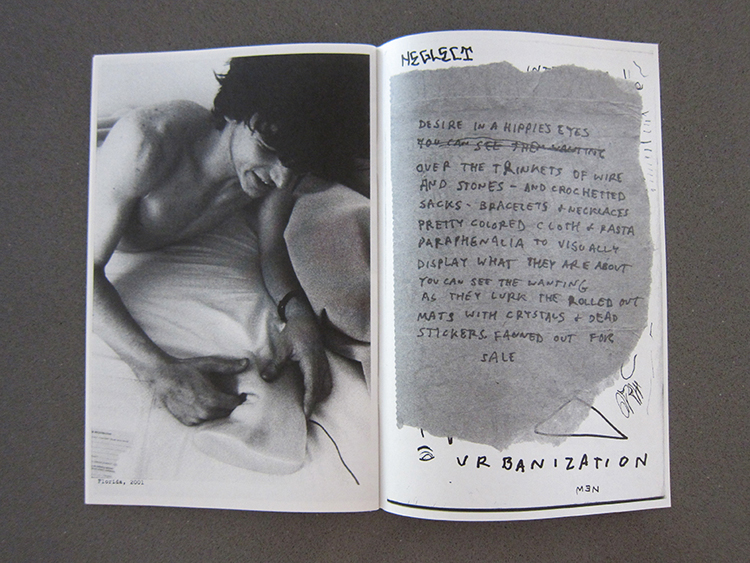 Florida, 2001
NEGLECT
INT
DESIRE IN A HIPPIES EYES
YOU CAN SEE THEM WANTING
OVER THE TRINKETS OF WIRE
AND STONES - AND CROCHETTED
SACKS - BRACELETS + NECKLACES
PRETTY COLORED CLOTH + RASTA
PARAPHENALIA TO VISUALLY
DISPLAY WHAT THEY ARE ABOUT
YOU CAN SEE THE WANTING
AS THEY LURK THE ROLLED OUT
MATS WITH CRYSTALS + DEAD
STICKERS FANNED OUT FOR
SALE
URBANIZATION
NEW